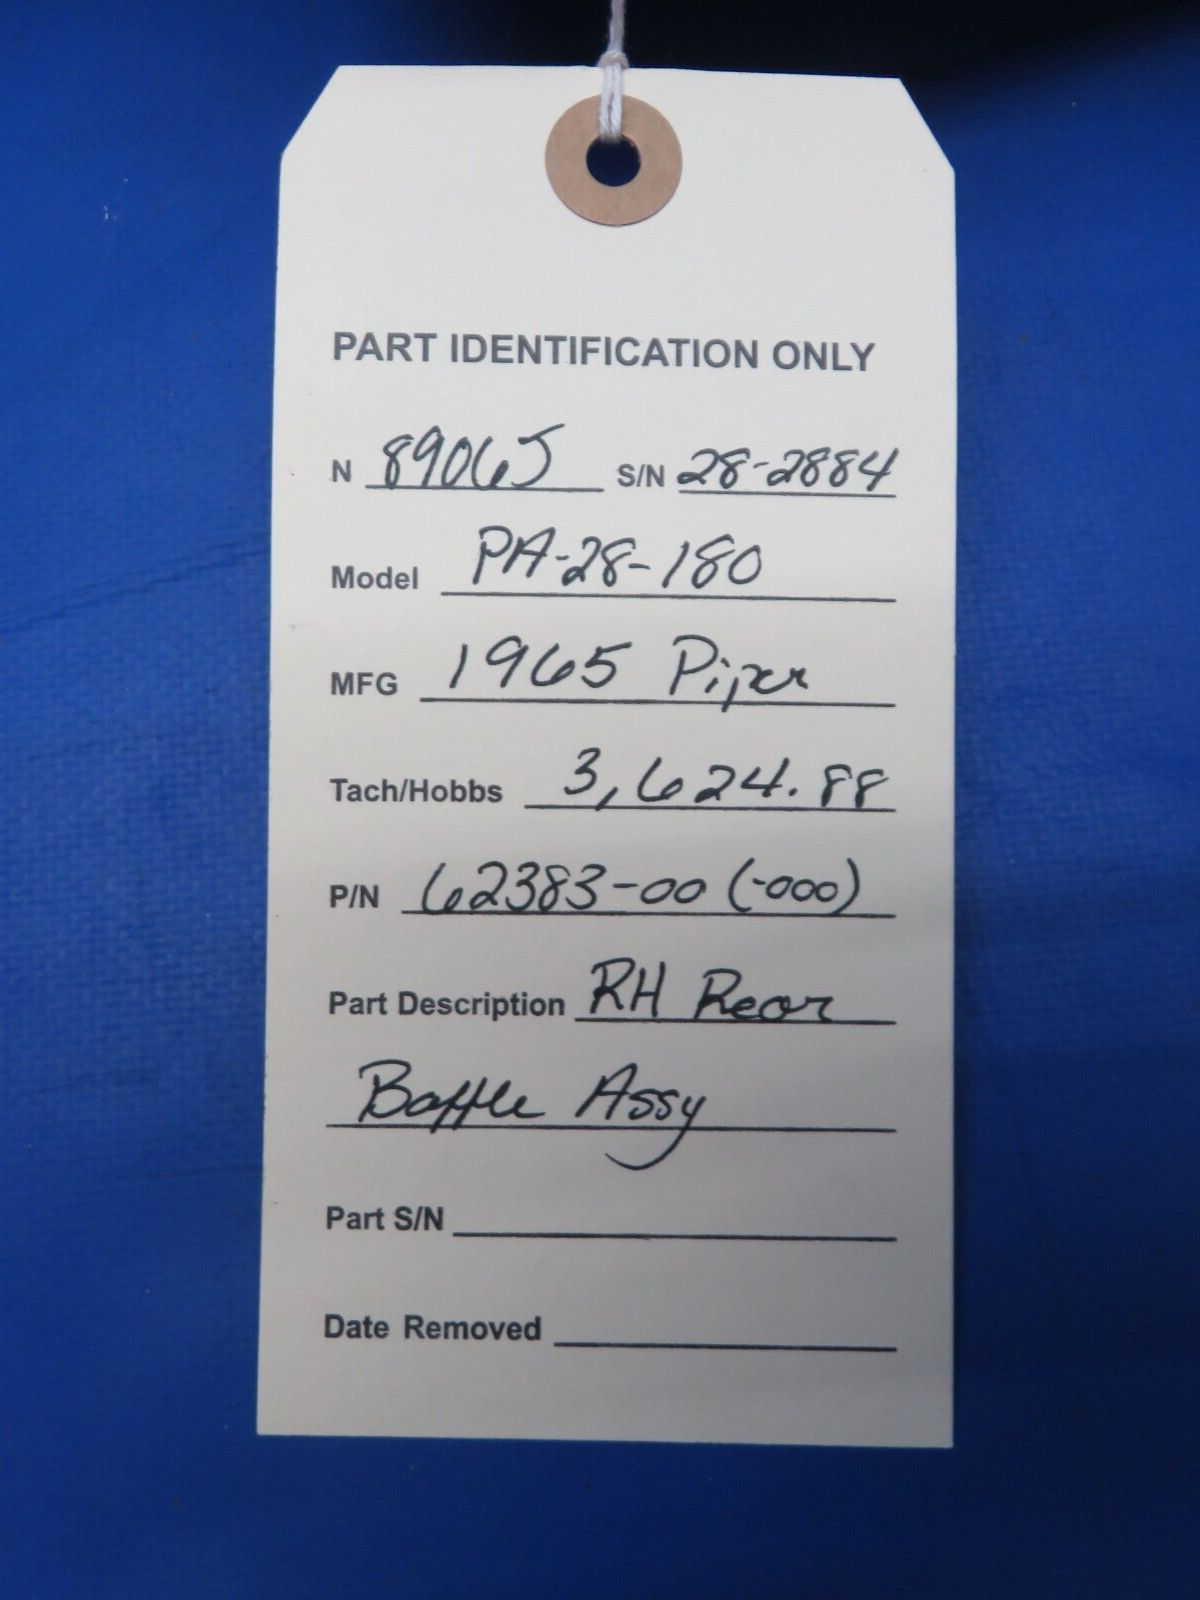 PART IDENTIFICATION ONLY
N 8906J S/N 28-2884
Model PA-28-180
MFG 1965 Piper
Tach/Hobbs 3,624.88
P/N 62383-00 (-000)
Part Description RH Rear
Baffle Assy
Part S/N
Date Removed